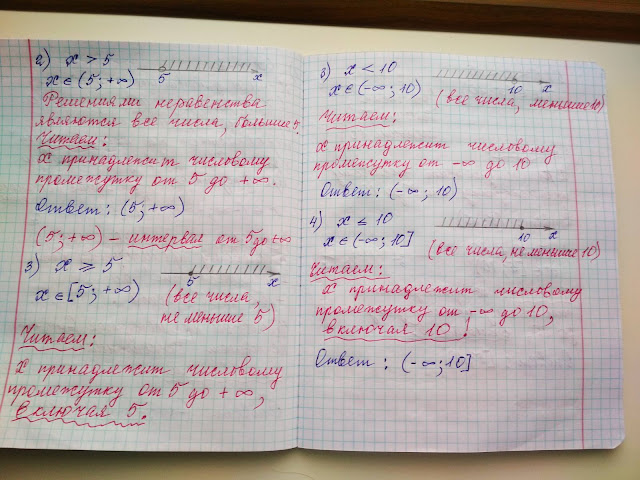 2) x > 5
5 x
x ∈ (5; +∞)
Решениями неравенства
являются все числа, больше 5.
Читаем:
x принадлежит числовому
промежутку от 5 до +∞.
Ответ: (5; +∞)
(5; +∞) – интервал от 5 до +∞
3) x ⩾ 5
5 x
x ∈ [5; +∞)
(все числа,
не меньше 5)
Читаем:
x принадлежит числовому
промежутку от 5 до +∞,
включая 5.
3) x < 10
10 x
x ∈ (-∞; 10)
(все числа, меньше 10)
Читаем:
x принадлежит числовому
промежутку от -∞ до 10
Ответ: (-∞; 10)
4) x ≤ 10
10 x
x ∈ (-∞; 10]
(все числа, не меньше 10)
Читаем:
x принадлежит числовому
промежутку от -∞ до 10,
включая 10!
Ответ: (-∞; 10]